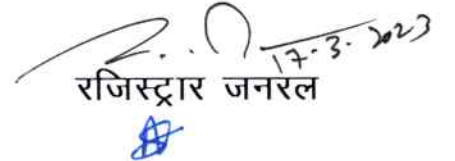 17.3.2023
रजिस्ट्रार जनरल